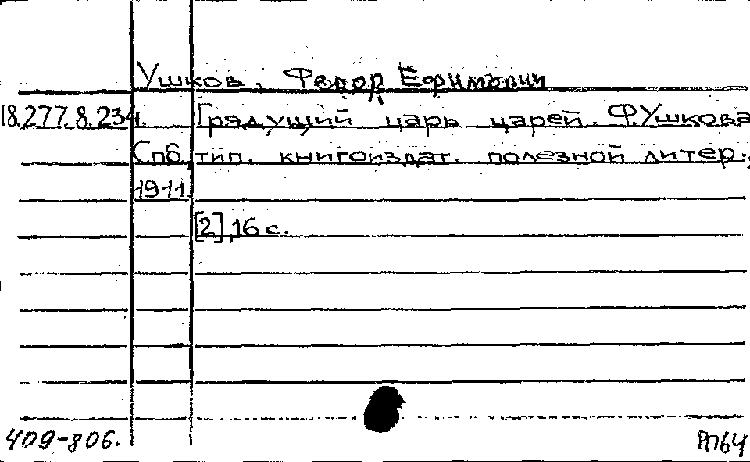 Ушков, Федор Ефимович
18.277.8.234. Грядущий царь царей. Ф.Ушкова
Спб, тип. книгоиздат. полезной литер.,
1911.
[2],16 с.
409-806. РП64